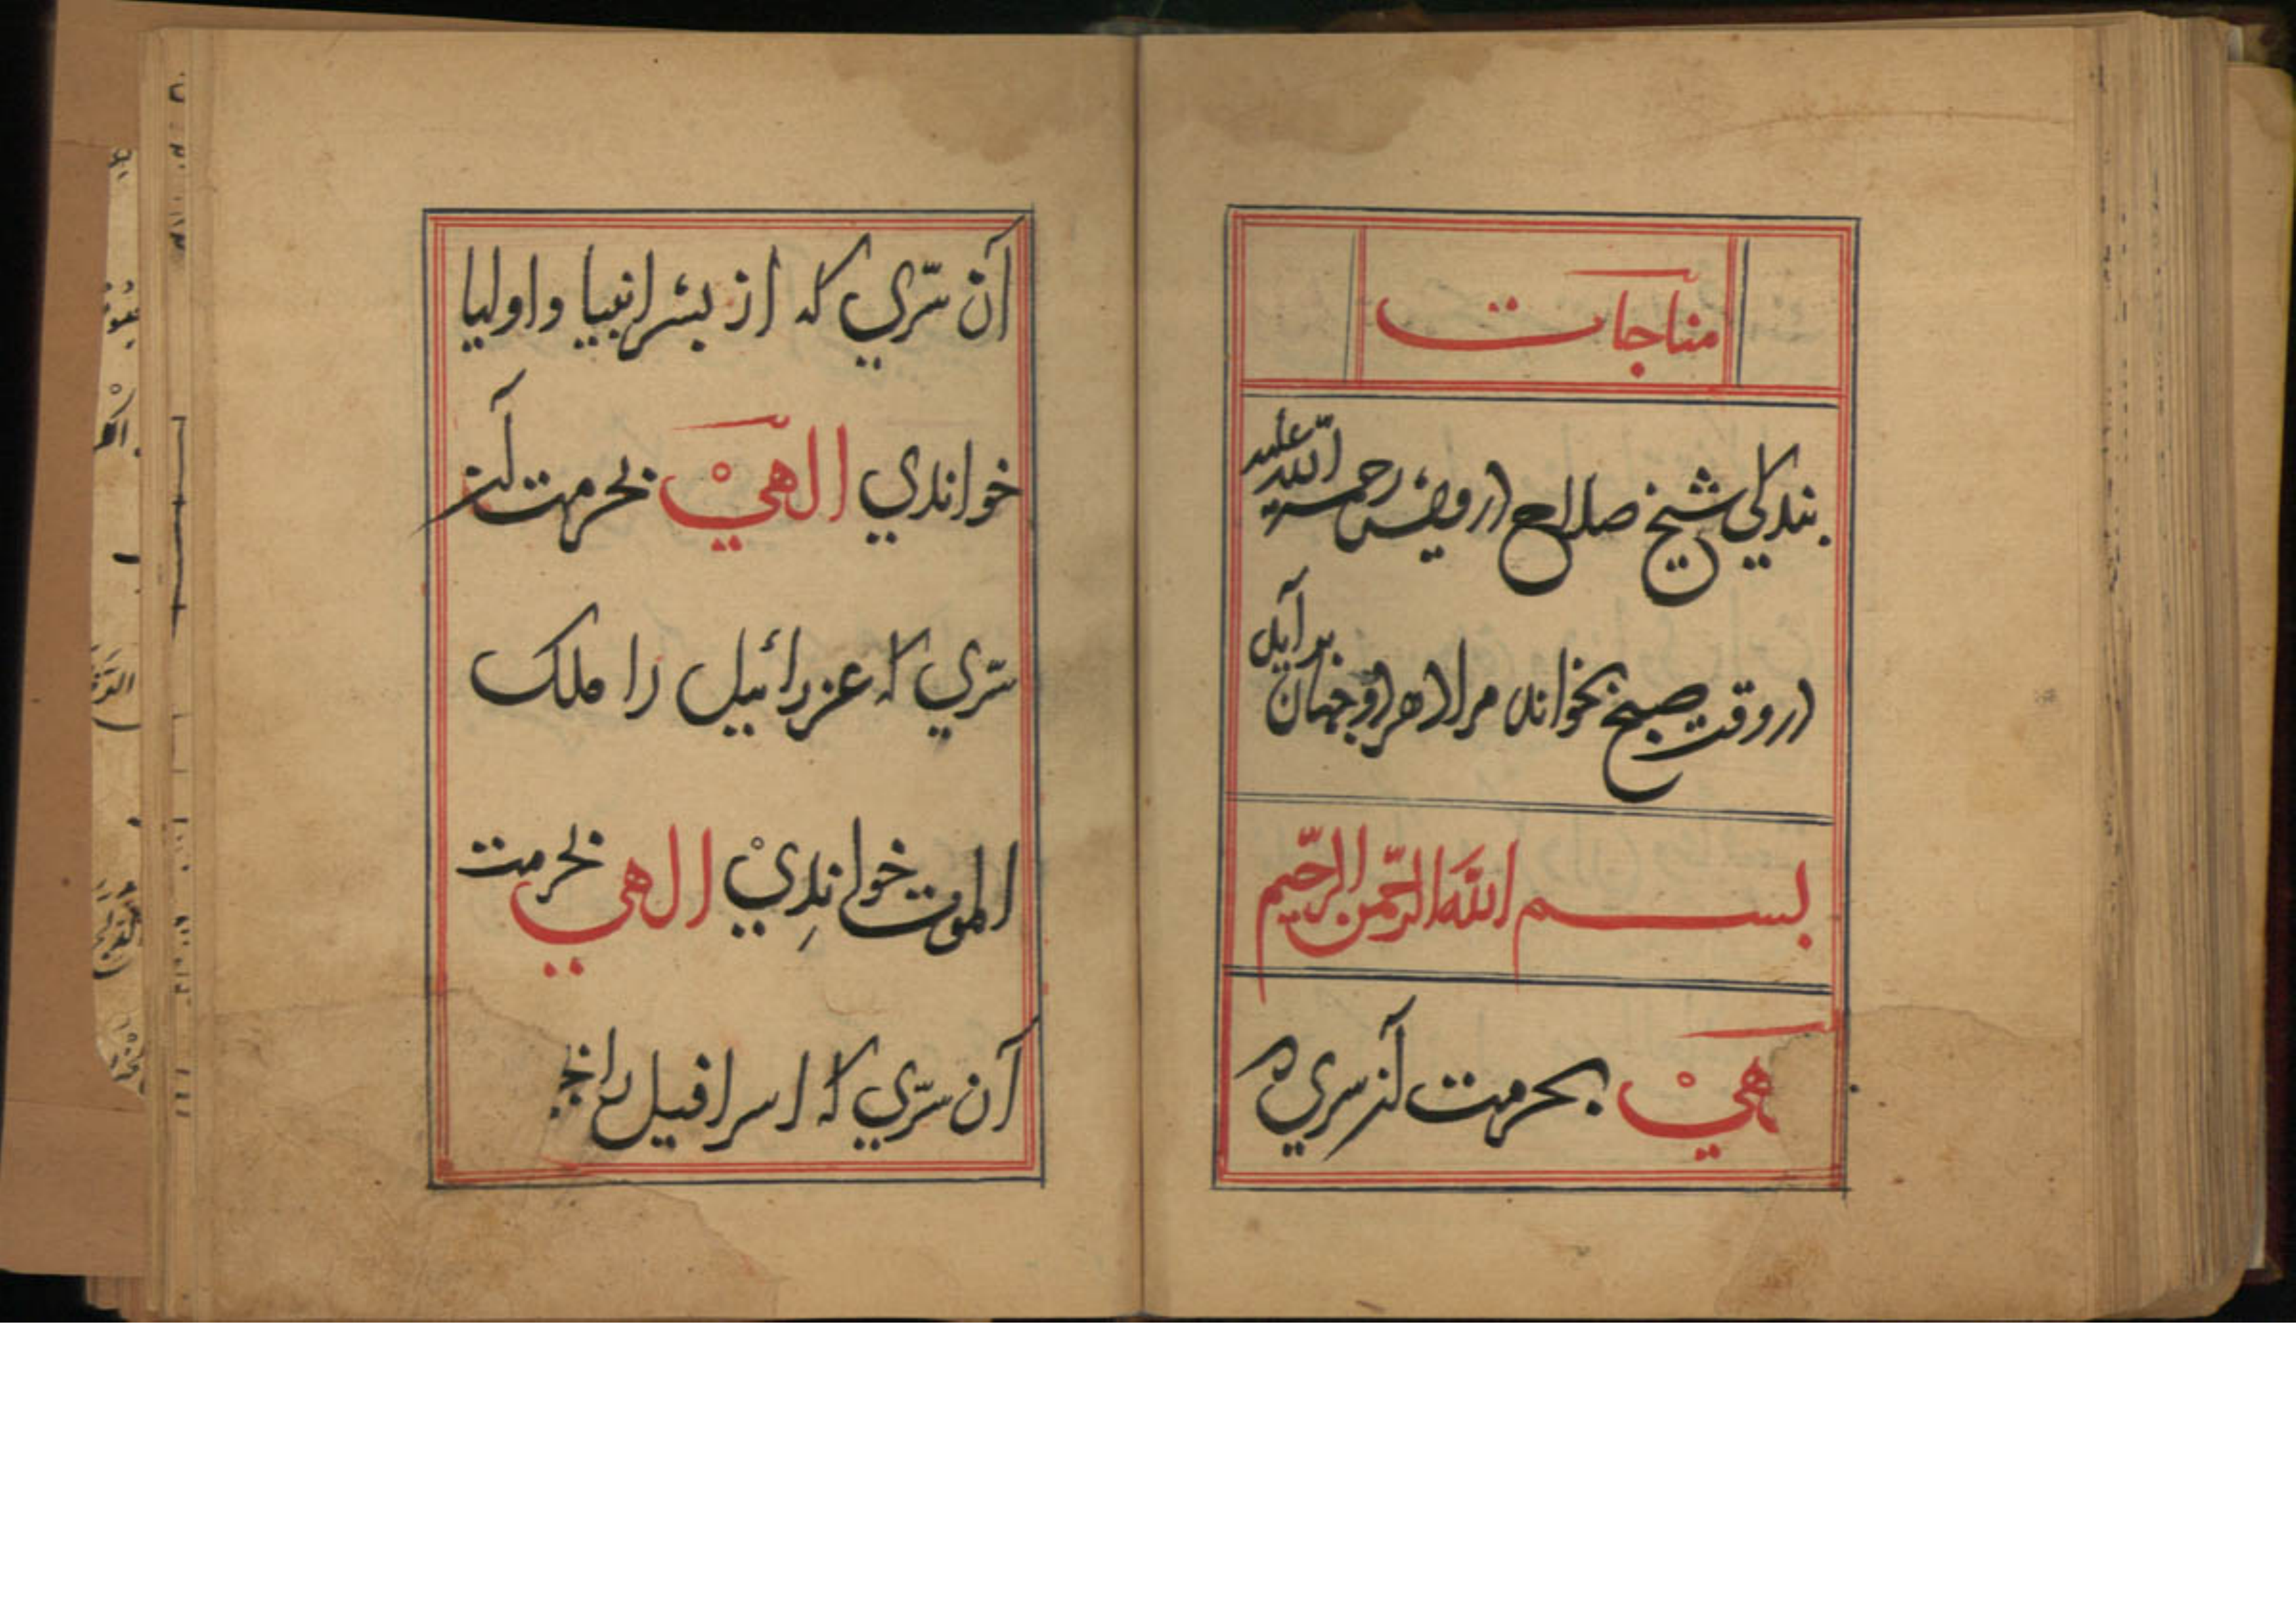 مناجات
بندکی شیخ صلاح درویش رحمة الله علیه
در وقت صبح بخواند مراد هر دو جهان بر آید
بسم الله الرحمن الرحیم
هيْ بحرمت آنسري
آن سّري که از بشر انبیا و اولیا
خواندي الٓهيْ بحرمت آن
سّري که عزرائیل را ملک
الموت خواندِيْ الهي بحرمت
آن سّري که اسرافیل را